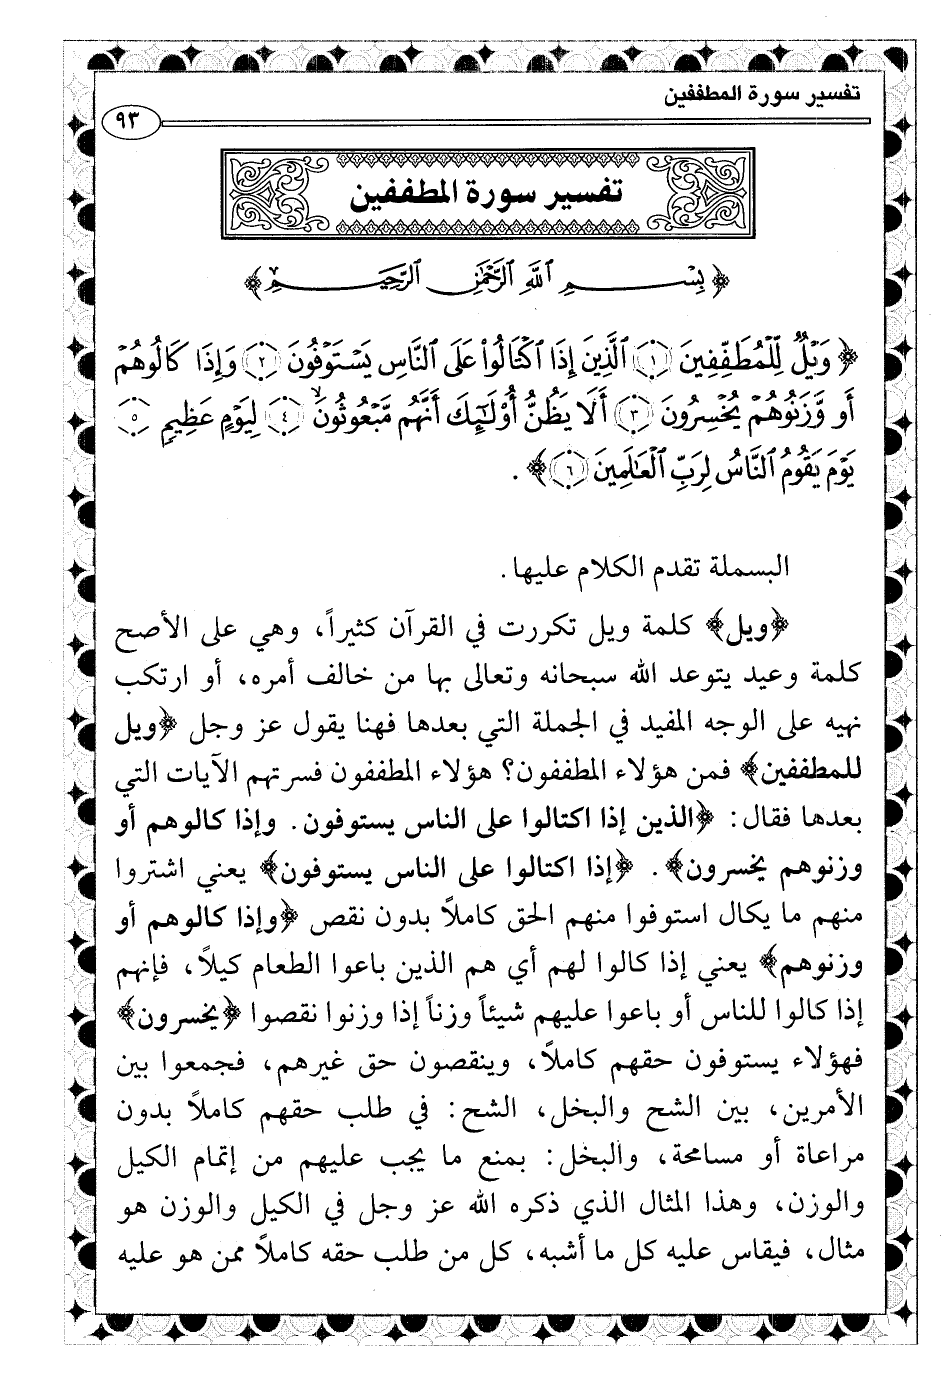 تفسير سورة المطففين
٩٣
تفسير سورة المطففين
﴿بِسْمِ ٱللَّهِ ٱلرَّحْمَٰنِ ٱلرَّحِيمِ﴾
﴿ وَيْلٌ لِّلْمُطَفِّفِينَ ﴿١﴾ ٱلَّذِينَ إِذَا ٱكْتَالُوا۟ عَلَى ٱلنَّاسِ يَسْتَوْفُونَ ﴿٢﴾ وَإِذَا كَالُوهُمْ
أَو وَّزَنُوهُمْ يُخْسِرُونَ ﴿٣﴾ أَلَا يَظُنُّ أُو۟لَٰٓئِكَ أَنَّهُم مَّبْعُوثُونَ ﴿٤﴾ لِيَوْمٍ عَظِيمٍ ﴿٥﴾
يَوْمَ يَقُومُ ٱلنَّاسُ لِرَبِّ ٱلْعَٰلَمِينَ ﴿٦﴾﴾ .
البسملة تقدم الكلام عليها.
﴿ويل﴾ كلمة ويل تكررت في القرآن كثيراً، وهي على الأصح
كلمة وعيد يتوعد الله سبحانه وتعالى بها من خالف أمره، أو ارتكب
نهيه على الوجه المفيد في الجملة التي بعدها فهنا يقول عز وجل ﴿ويل
للمطففين﴾ فمن هؤلاء المطففون؟ هؤلاء المطففون فسرتهم الآيات التي
بعدها فقال: ﴿الذين إذا اكتالوا على الناس يستوفون. وإذا كالوهم أو
وزنوهم يخسرون﴾. ﴿إذا اكتالوا على الناس يستوفون﴾ يعني اشتروا
منهم ما يكال استوفوا منهم الحق كاملاً بدون نقص ﴿وإذا كالوهم أو
وزنوهم﴾ يعني إذا كالوا لهم أي هم الذين باعوا الطعام كيلاً، فإنهم
إذا كالوا للناس أو باعوا عليهم شيئاً وزناً إذا وزنوا نقصوا ﴿يخسرون﴾
فهؤلاء يستوفون حقهم كاملاً، وينقصون حق غيرهم، فجمعوا بين
الأمرين، بين الشح والبخل، الشح: في طلب حقهم كاملاً بدون
مراعاة أو مسامحة، والبخل: بمنع ما يجب عليهم من إتمام الكيل
والوزن، وهذا المثال الذي ذكره الله عز وجل في الكيل والوزن هو
مثال، فيقاس عليه كل ما أشبه، كل من طلب حقه كاملاً ممن هو عليه